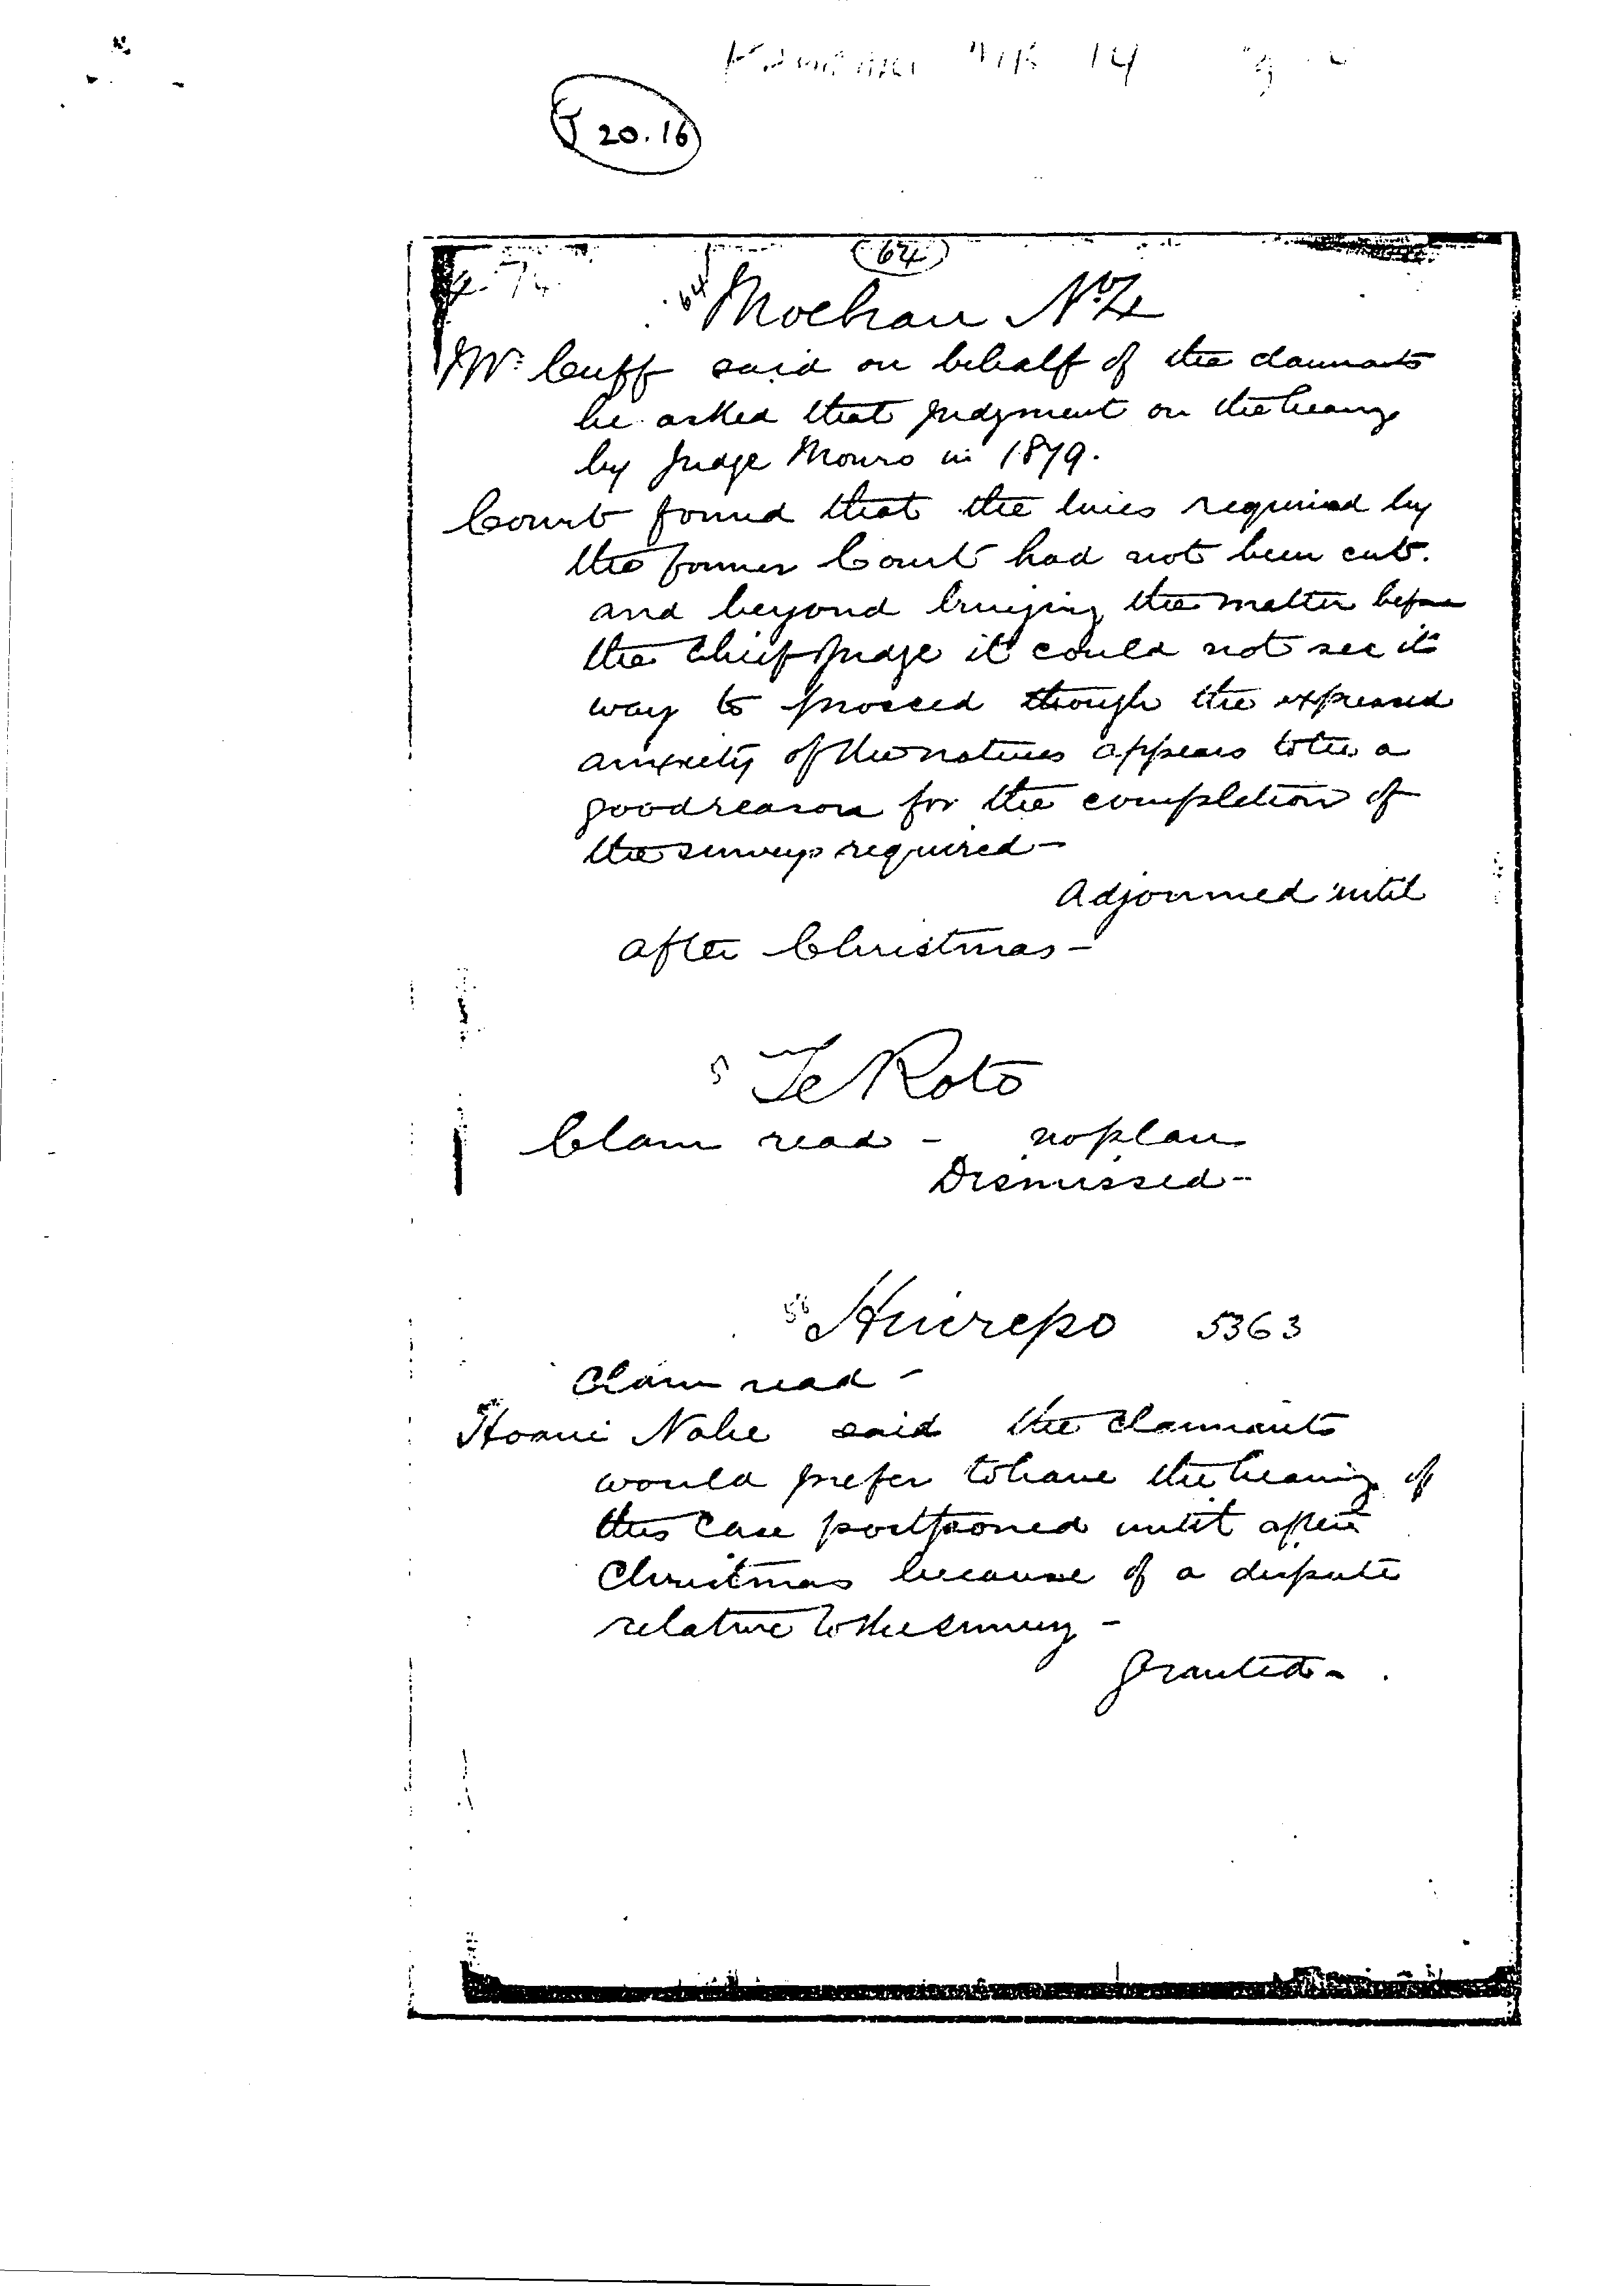 MB 14
J 20.16
64
64 Moehau No 4
Mr. Cuff said on behalf of the claimants
he asked that judgment on the hearing
by Judge Monro in 1879.
Court found that the lines required by
the former Court had not been cut.
and beyond bringing the matter before
the Chief Judge it could not see its
way to proceed though the expressed
anxiety of the natives appears to be a
good reason for the completion of
the surveys required -
Adjourned until
after Christmas -
5 Te Roto
Claim read - no plan
Dismissed -
56 Huirepo 5363
Claim read -
Hoani Nahe said the claimants
would prefer to have the hearing of
this case postponed until after
Christmas because of a dispute
relative to the survey -
Granted -